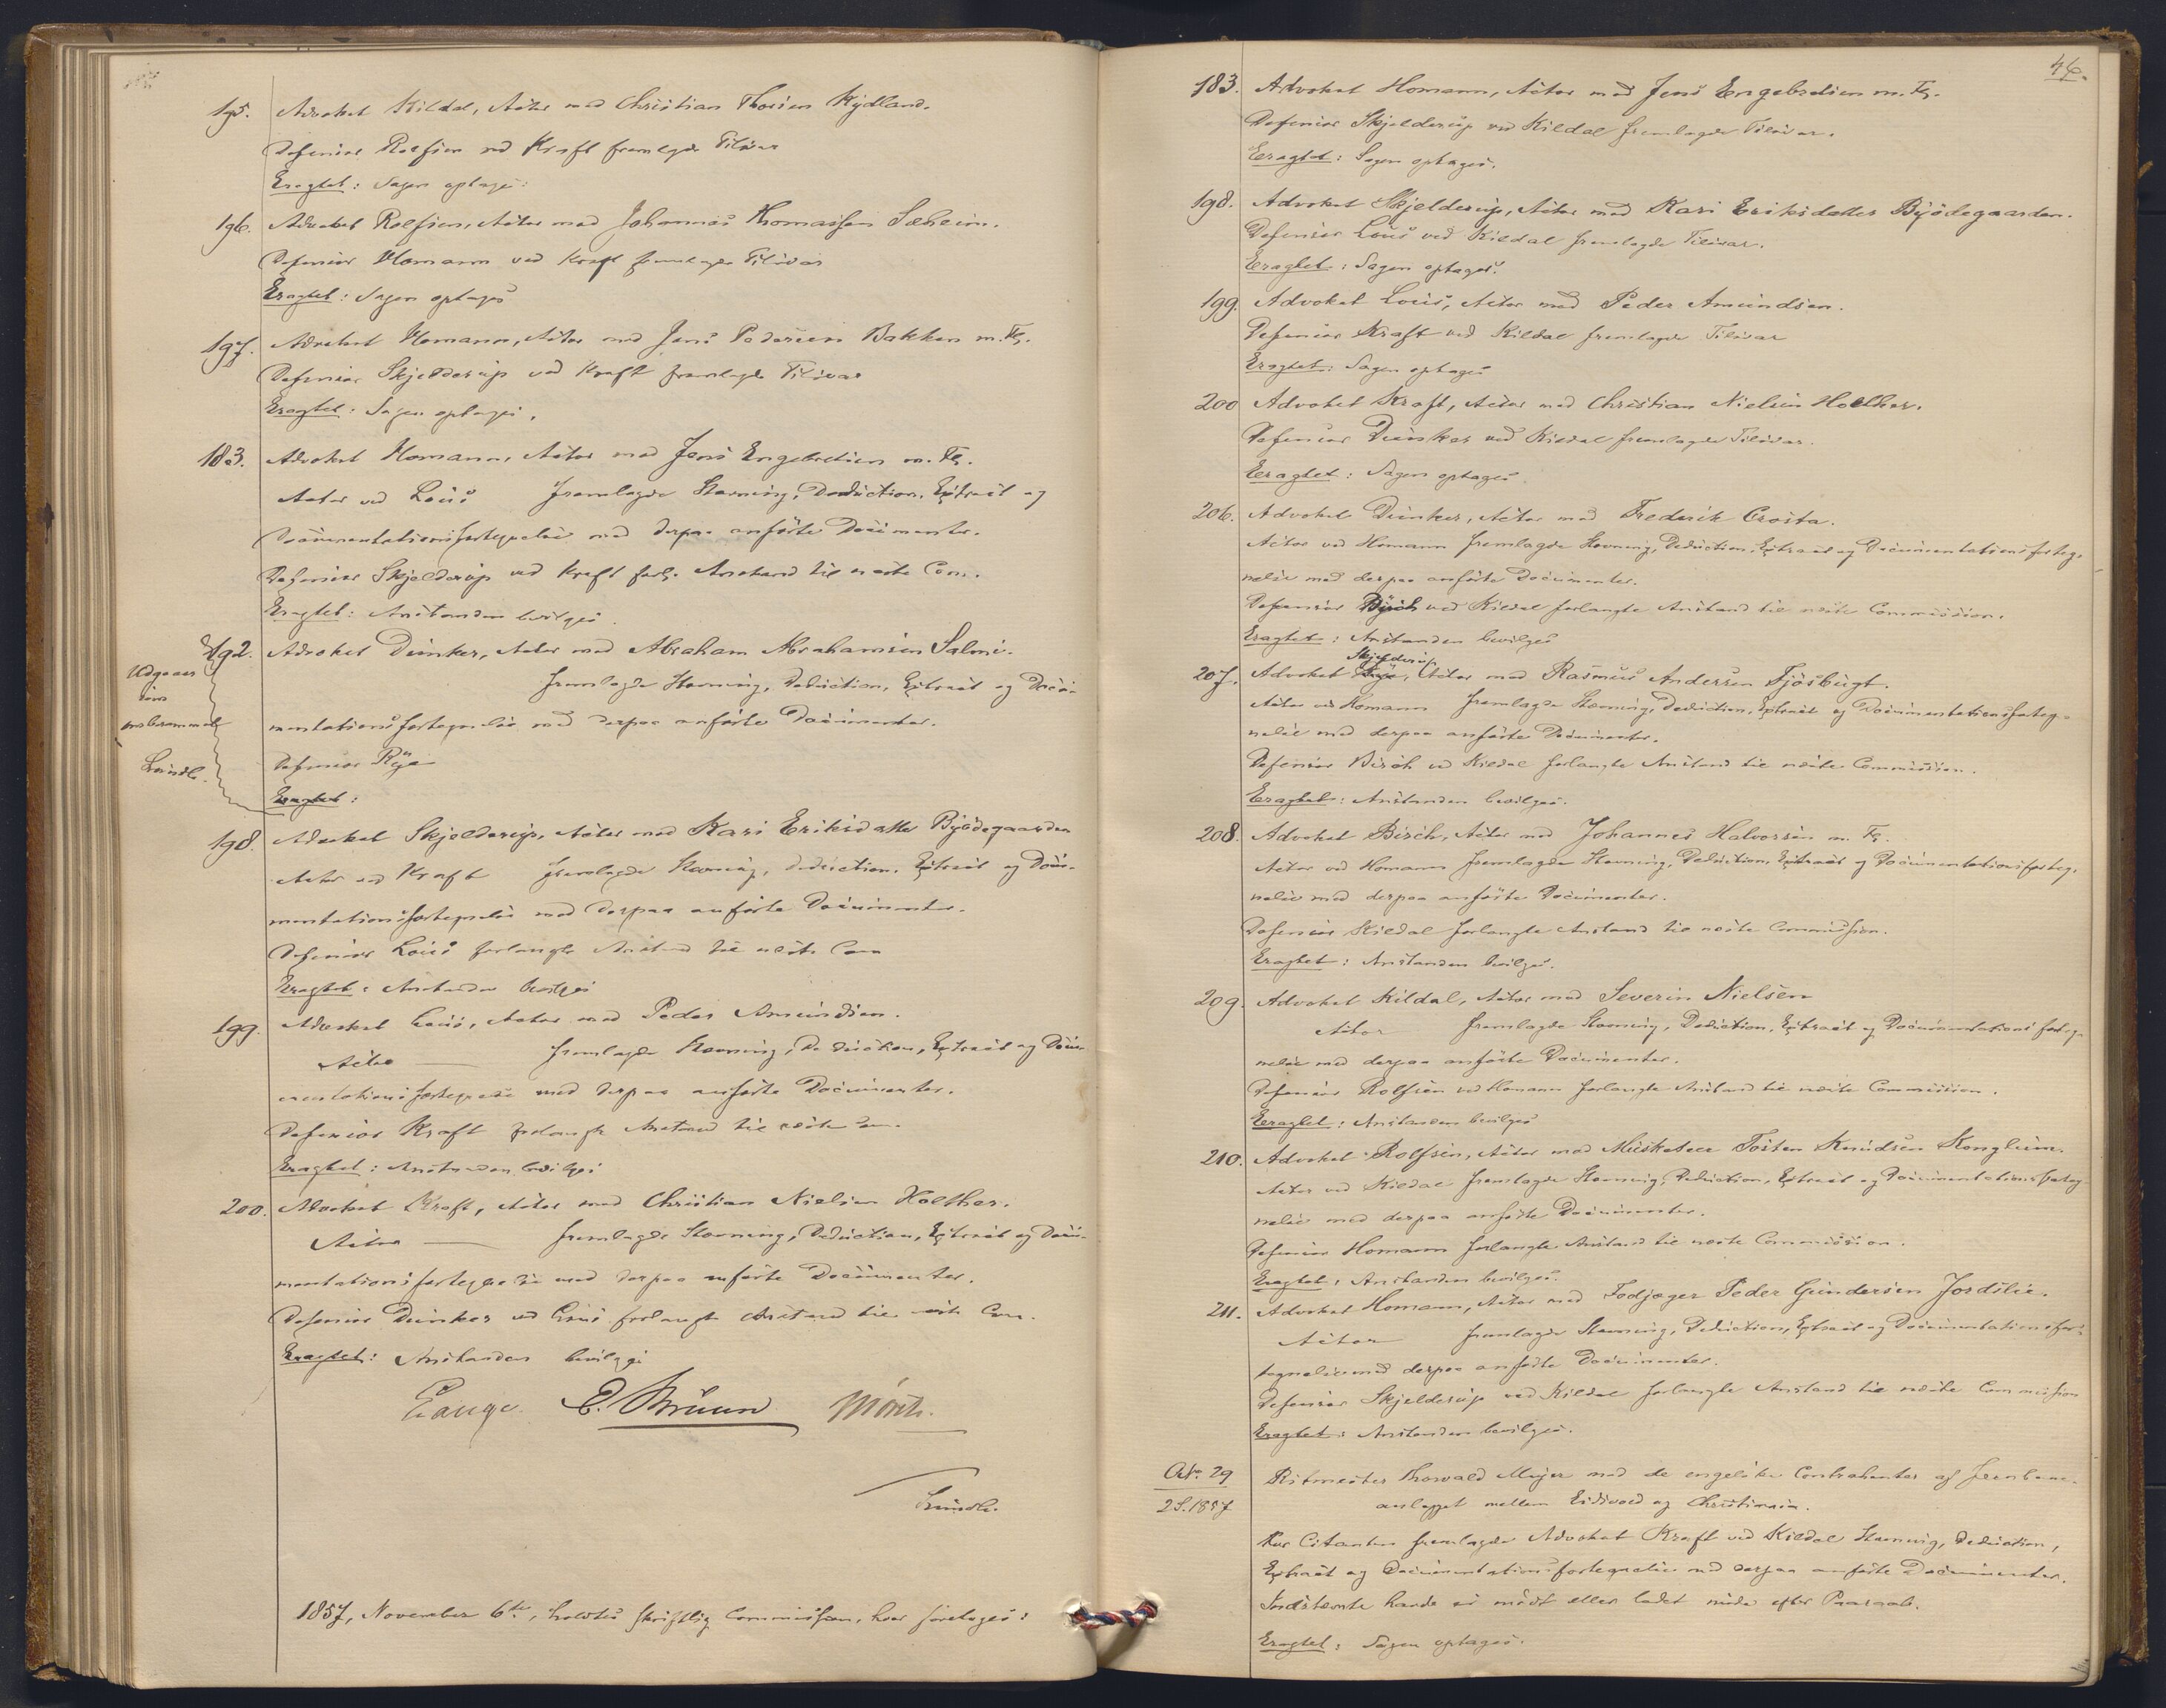 195. Advokat Kildal, Actor mod Christian Thorsen Kydland.
Defensor Rolfsen ved Kraft fremlagde Tilsvar
Eragtet: Sagen optages.
196. Advokat Rolfsen, Actor mod Johannes Thomassen Sæheim.
Defensor Homann ved Kraft fremlagde Tilsvar
Eragtet: Sagen optages
197. Advokat Homann, Actor mod Jens Pedersen Bakken m. Fl.
Defensor Skjelderup ved Kraft fremlagde Tilsvar
Eragtet: Sagen optages.
183. Advokat Homann, Actor mod Jens Engebretsen m. Fl.
Actor ved Lous fremlagde Stevning, Deduction, Extract og
Documentationsfortegnelse med derpaa anførte Documenter.
Defensor Skjelderup ved Kraft forl. Anstand til næste Com.
Eragtet: Anstanden bevilges.
192. Advokat Dunker, Actor mod Abraham Abrahamsen Salmi.
Udgaaer
fremlagde Stevning, Deduction, Extract og Docu-
mentationsfortegnelse med derpaa anførte Documenter.
Defensor Rye
Eragtet:
198. Advokat Skjelderup, Actor mod Kari Eriksdatter Byödegaarden
Actor ved Kraft fremlagde Stevning, Deduction, Extract og Docu-
mentationsfortegnelse med derpaa anførte Documenter.
Defensor Lous forlangte Anstand til næste Com
Eragtet: Anstanden bevilges
199. Advokat Lous, Actor mod Peder Amundsen.
Actor — fremlagde Stevning, Deduction, Extract og Docu-
mentationsfortegnelse med derpaa anførte Documenter.
Defensor Kraft forlangte Anstand til næste Com.
Eragtet: Anstanden bevilges
200. Advokat Kraft, Actor mod Christian Nielsen Holther.
Actor — fremlagde Stevning, Deduction, Extract og Docu-
mentationsfortegnelse med derpaa anførte Documenter.
Defensor Dunker ved Lous forlangte Anstand til næste Com.
Eragtet: Anstanden bevilges
Lange. C. Bruun Münch.
1857, November 6te, holdtes skriftlig Commission, hvor foretoges:
46.
183. Advokat Homann, Actor mod Jens Engebretsen m. Fl.
Defensor Skjelderup ved Kildal fremlagde Tilsvar.
Eragtet: Sagen optages.
198. Advokat Skjelderup, Actor mod Kari Eriksdatter Byödegaarden.
Defensor Lous ved Kildal fremlagde Tilsvar.
Eragtet: Sagen optages.
199. Advokat Lous, Actor mod Peder Amundsen.
Defensor Kraft ved Kildal fremlagde Tilsvar
Eragtet: Sagen optages
200 Advokat Kraft, Actor mod Christian Nielsen Holther.
Defensor Dunker ved Kildal fremlagde Tilsvar.
Eragtet: Sagen optages.
206. Advokat Dunker, Actor mod Frederik Crosta.
Actor ved Homann fremlagde Stevning, Deduction, Extract og Documentationsforteg-
nelse med derpaa anførte Documenter.
Defensor Birch ved Kildal forlangte Anstand til næste Commission.
Eragtet: Anstanden bevilges
Skjelderup
207. Advokat Rye, Actor mod Rasmus Andersen Fjösbugt.
Actor ved Homann fremlagde Stevning, Deduction, Extract og Documentationsforteg-
nelse med derpaa anførte Documenter.
Defensor Birch ved Kildal forlangte Anstand til næste Commission.
Eragtet: Anstanden bevilges.
208. Advokat Birch, Actor mod Johannes Halvorsen m. Fl.
Actor ved Homann fremlagde Stevning, Deduction, Extract og Documentationsforteg-
nelse med derpaa anførte Documenter.
Defensor Kildal forlangte Anstand til næste Commission.
Eragtet: Anstanden bevilges.
209. Advokat Kildal, Actor mod Severin Nielsen
Actor fremlagde Stevning, Deduction, Extract og Documentationsforteg-
nelse med derpaa anførte Documenter.
Defensor Rolfsen ved Homann forlangte Anstand til næste Commission.
Eragtet: Anstanden bevilges
210. Advokat Rolfsen, Actor mod Musketeer Tosten Knudsen Konglum.
Actor ved Kildal fremlagde Stevning, Deduction, Extract og Documentationsforteg-
nelse med derpaa anførte Documenter.
Defensor Homann forlangte Anstand til næste Commission.
Eragtet: Anstanden bevilges.
211. Advokat Homann, Actor mod Fodjæger Peder Gundersen Jordslie.
Actor fremlagde Stevning, Deduction, Extract og Documentationsfor-
tegnelse med derpaa anførte Documenter.
Defensor Skjelderup ved Kildal forlangte Anstand til næste Commission
Eragtet: Anstanden bevilges.
29
2 S. 1857
Ritmester Thorvald Meyer mod de engelske Contrahenter af Jernbane-
anlægget mellem Eidsvold og Christiania.
For Citanten fremlagde Advokat Kraft ved Kildal Stevning, Deduction,
Extract og Documentationsfortegnelse med derpaa anførte Documenter.
Indstevnte havde ei mödt eller ladet möde efter Paaraab.
Eragtet: Sagen optages.